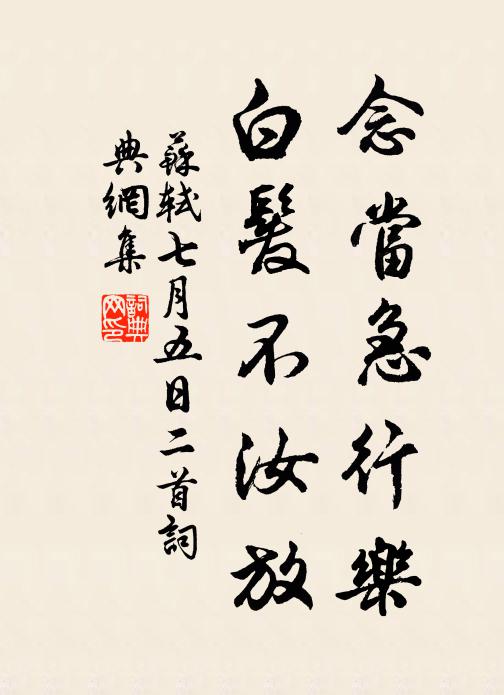 念當急行樂
白髮不汝放
蘇軾七月五日二首詞
典網集
詞典網印